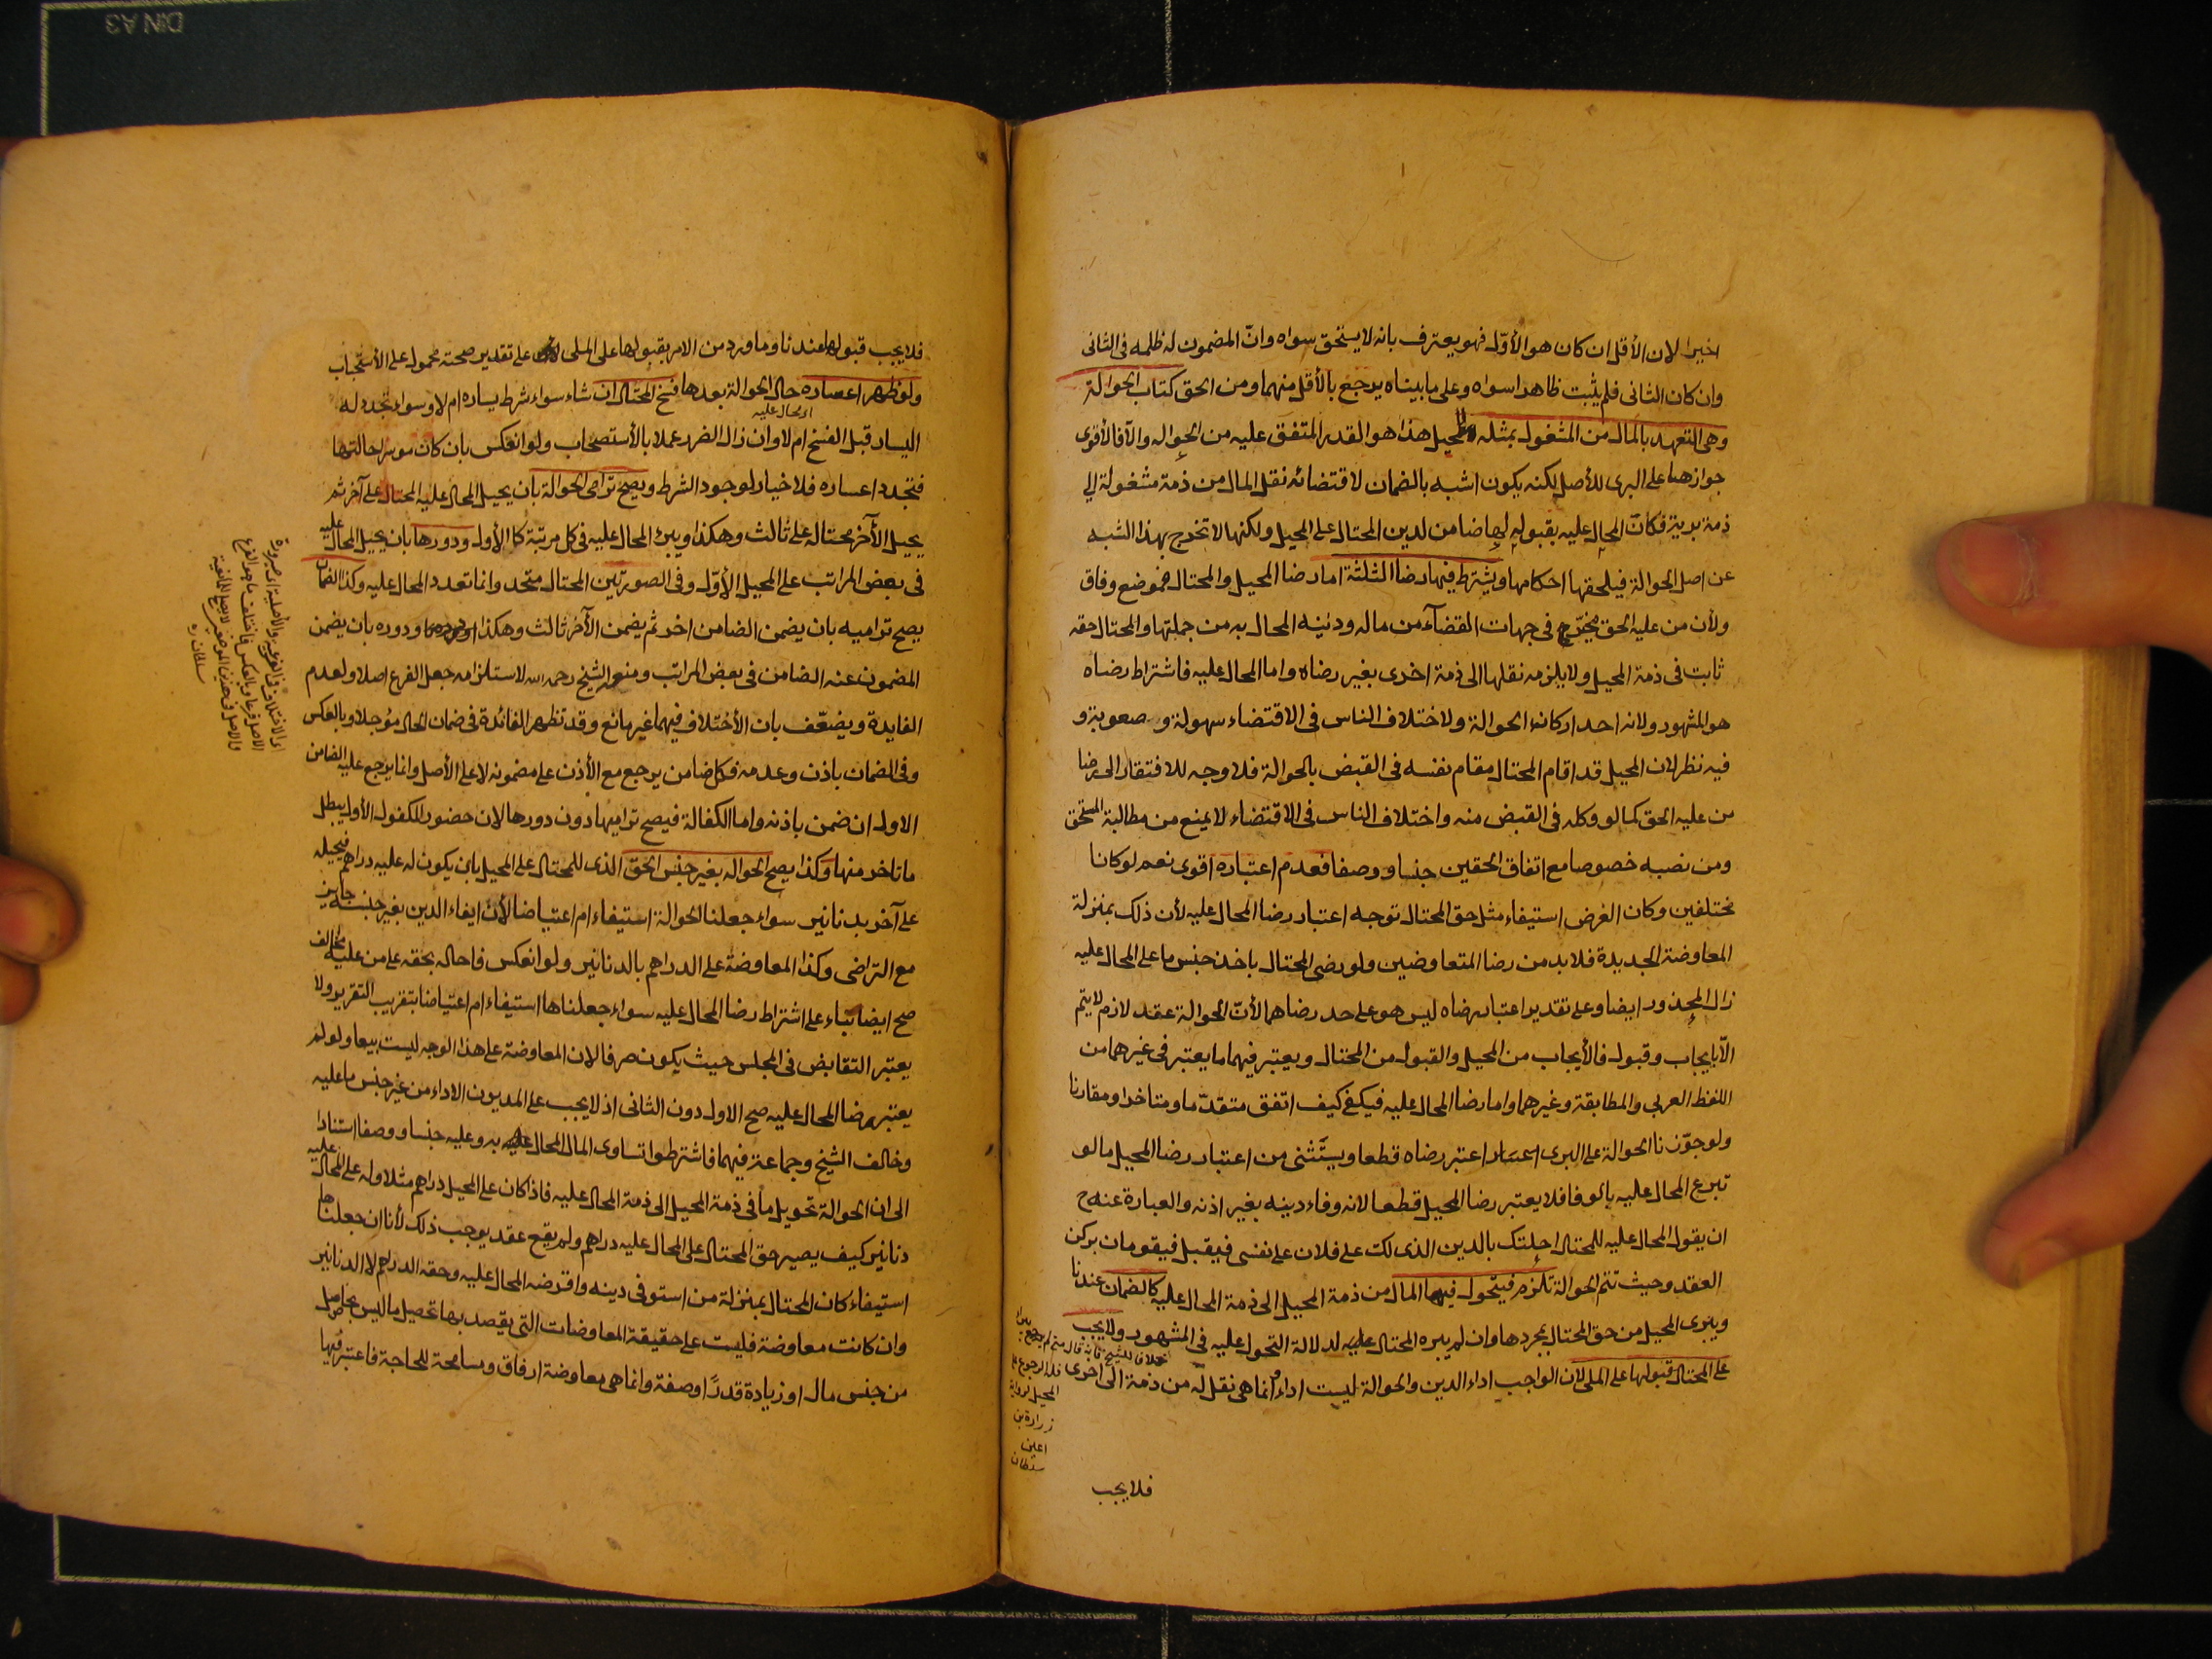 اخيرا لان الأقل ان كان هو الأوّل فهو يعترف بانه لا يستحق سواه وانّ المضمون له ظلمه فى الثانى
وان كان الثانى فلم يثبت ظاهرا سواه وعلى ما بيناه يرجع بالأقل منهما ومن الحق كتاب الحوالة
وهى التعهد بالمال من المشغول بمثله للمحيل هذا هو القدر المتفق عليه من الحواله والآ فالأقوى
جوازها على البرى للأصل لكنه يكون اشبه بالضمان لاقتضائه نقل المال من ذمة مشغولة الى
ذمة برية فكانّ المحال عليه بقبوله لها ضامن لدين المحتال على المحيل ولكنها لا تخرج بهذا الشبه
عن اصل الحوالة فيلحقها احكامها ويشترط فيها رضا الثلثة اما رضا المحيل والمحتال فموضع وفاق
ولأن من عليه الحق مخيّر فى جهات القضآء من ماله ودينه المحال به من جملتها والمحتال حقه
ثابت فى ذمة المحيل ولا يلزمه نقلها الى ذمة اخرى بغير رضاه واما المحال عليه فاشتراط رضاه
هو المشهور ولانه احد اركان الحوالة ولاختلاف الناس فى الاقتضاء سهولة وصعوبة و
فيه نظر لان المحيل قد اقام المحتال مقام نفسه فى القبض بالحوالة فلا وجه للافتقار الى رضا
من عليه الحق كما لو وكله فى القبض منه واختلاف الناس فى الاقتضاء لا يمنع من مطالبة المستحق
ومن نصبه خصوصا مع اتفاق الحقين جنسا ووصفا فعدم اعتباره اقوى نعم لو كانا
مختلفين وكان الغرض استيفاء مثل حق المحتال توجه اعتبار رضا المحال عليه لأن ذلك بمنزلة
المعاوضة الجديدة فلا بد من رضا المتعاوضين ولو رضى المحتال باخذ جنس ما على المحال عليه
زال المحذور ايضا وعلى تقدير اعتبار رضاه ليس هو على حد رضاهما لأنّ الحوالة عقد لازم لا يتم
الّا بايجاب وقبول فالأيجاب من المحيل والقبول من المحتال ويعتبر فيهما ما يعتبر فى غيرهما من
اللفظ العربى والمطابقة وغيرهما واما رضا المحال عليه فيكفى كيف اتفق متقدّما ومتاخرا ومقارنا
ولو جوّزنا الحوالة على البرى اعتبر رضاه قطعا ويستَثنى من اعتبار رضا المحيل ما لو
تبرع المحال عليه بالوفا فلا يعتبر رضا المحيل قطعا لانه وفاء دينه بغير اذنه والعبارة عنه ح
ان يقول المحال عليه للمحتال احلتك بالدين الذى لك على فلان على نفسى فيقبل فيقومان بركن
العقد وحيث تتم الحوالة تلزم فيتحول فيها المال من ذمة المحيل الى ذمة المحال عليه كالضمان عندنا
ويبرى المحيل من حق المحتال بمجردها وان لم يبره المحتال لدلالة التحول عليه فى المشهور ولا يجب
على المحتال قبولها على الملى لان الواجب اداء الدين والحوالة ليست اداء وانما هى نقل له من ذمة الى اخرى
خلافا للشيخ فانه قال
فله الرجوع على
المحيل لرواية
زرارة بن
اعين
سلطان
فلا يجب
فلا يجب قبولها عندنا وما ورد من الامر بقبولها على الملى على تقدير صحته محمول على الأستحباب
ولو ظهر اعساره حال الحوالة بعدها فسخ المحتال ان شاء سواء شرط يساره ام لا وسواء تجدد له
اى محال عليه
اليسار قبل الفسخ ام لا وان زال الضرر عملا بالأستصحاب ولو انعكس بان كان موسرا حالتها
فتجدد اعساره فلا خيار لوجود الشرط ويصح ترامى الحوالة بان يحيل المحال عليه المحتال على آخر ثم
يحيل الأآخر محتاله على ثالث وهكذا ويبرئ المحال عليه فى كل مرتبة كالأول ودورها بان يحيل المحال عليه
فى بعض المراتب على المحيل الأوّل وفى الصورتين المحتال متحد وانما تعدد المحال عليه وكذا الضمان
يصح تراميه بان يضمن الضامن اخر ثم يضمن الآخر ثالث وهكذا ودوره بان يضمن
المضمون عنه الضامن فى بعض المراتب ومنعه الشيخ رحمه الله لاستلزامه جعل الفرع اصلا ولعدم
الفايدة ويضعّف بان الأختلاف فيهما غير مانع وقد تظهر الفائدة فى ضمان الحال مؤجلا وبالعكس
وفى الضمان باذن وعدمه فكل ضامن يرجع مع الأذن على مضمونه لا على الأصل وانما يرجع عليه الضامن
الاول ان ضمن باذنه واما الكفالة فيصح تراميها دون دورها لان حضور المكفول الأول يبطل
ما تاخر منها وكذا يصح الحواله بغير جنس الحق الذى للمحتال على المحيل بان يكون له عليه دراهم فيحيله
على آخر بدنانير سواء جعلنا الحوالة استيفاء ام اعتياضا لأن ايفاء الدين بغير جنسه جايز
مع التراضى وكذا المعاوضة على الدراهم بالدنانير ولو انعكس فاحاله بحقه على من عليه مخالف
صح ايضا بناء على اشتراط رضا المحال عليه سواء جعلناها استيفاء ام اعتياضا بتقريب التقرير ولا
يعتبر التقابض فى المجلس حيث يكون صرفا لان المعاوضة على هذا الوجه ليست بيعا ولو لم
يعتبر رضا المحال عليه صح الاول دون الثانى اذ لا يجب على المديون الاداء من غير جنس ما عليه
وخالف الشيخ وجماعة فيهما فاشترطوا تساوى المال المحال به وعليه جنسا ووصفا استنادا
الى ان الحوالة تحويل ما فى ذمة المحيل الى ذمة المحال عليه فاذا كان على المحيل دراهم مثلا وله على المحال عليه
دنانير كيف يصير حق المحتال على المحال عليه دراهم ولم يقع عقد يوجب ذلك لأنا ان جعلناها
استيفاء كان المحتال بمنزلة من استوفى دينه واقرضه المحال عليه وحقه الدراهم لا الدنانير
وان كانت معاوضة فليست على حقيقة المعاوضات التى يقصد بها تحصيل ما ليس بحاصل
من جنس مال او زيادة قدرًا وصفة وانما هى معاوضة ارفاق ومسامحة للحاجة فاعتبر فيها
اى الاختلاف فى الفرعية والأصلية اى صيرورة
الاصل فرعا وبالعكس فاختلف ما هو الفرع
والاصل فى هذين الموضعين لا يصلح للمانعية
سلطان ره